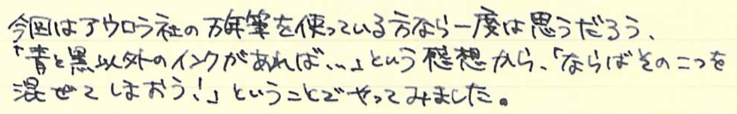 今回はアウロラ社の万年筆を使っている方なら一度は思うだろう、
「青と黒以外のインクがあれば…」という感想から、「ならばその二つを
混ぜてしまおう!」ということでやってみました。